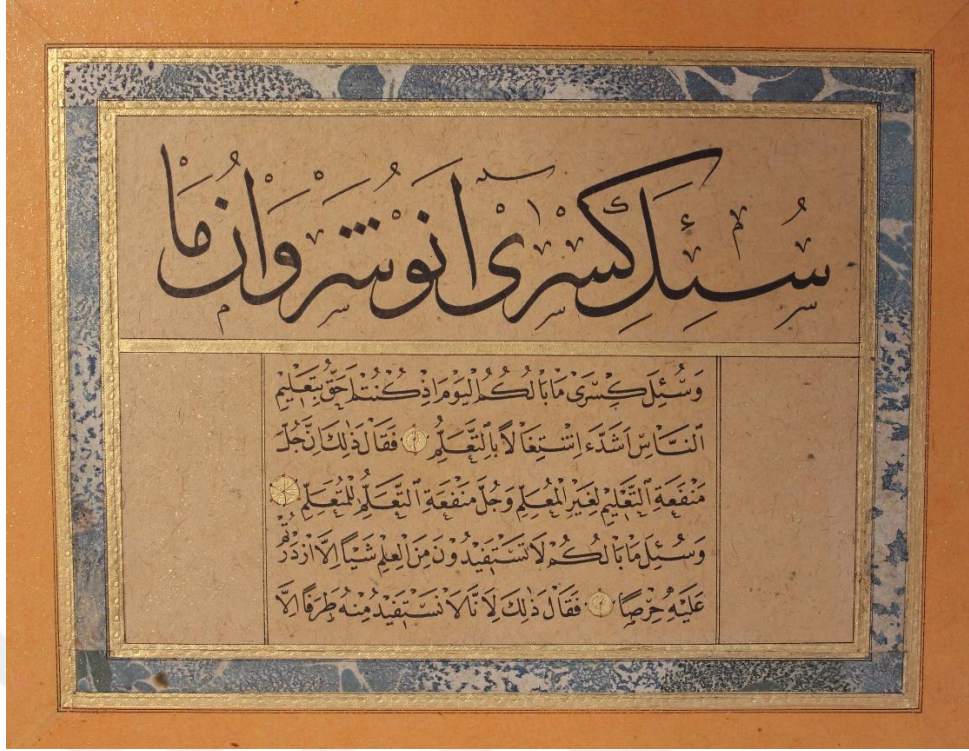 سُئِلَ كِسْرٰى اَنُوشَرْوَانْ مَا
وَسُئِلَ كِسْرَىٰ مَابَالُكُمُ الْيَوْمَ اِذْكُنْتُمْ اَحَقُّ بِتَعْلِيمِ
النَّاسِ اَشَدَّءَ اِشْتِغَالًا بِالتَّعَلُّمِ فَقَالَ ذٰلِكَ اِنَّ جُلَّ
مَنْفَعَةِ التَّعْلِيمِ لِغَيْرِ الْمُعَلِّمِ وَجُلَّ مَنْفَعَةِ التَّعَلُّمِ لِلْمُتَعَلِّمِ
وَسُئِلَ مَابَالُكُمْ لَا تَسْتَفِيدُونَ مِنَ الْعِلْمِ شَيْاً اِلَّا ازْدَدْتُمْ
عَلَيْهِ حِرْصًا فَقَالَ ذٰلِكَ لِاَنَّا لَا نَسْتَفِيدُ مِنْهُ طَرَفًا اِلَّا